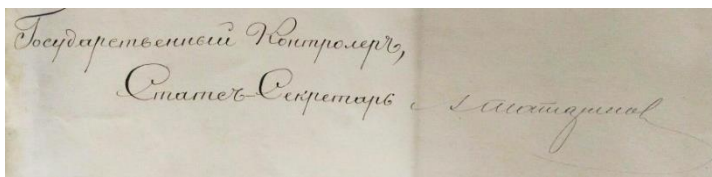 Государственный Контролеръ,
Статсъ-Секретарь